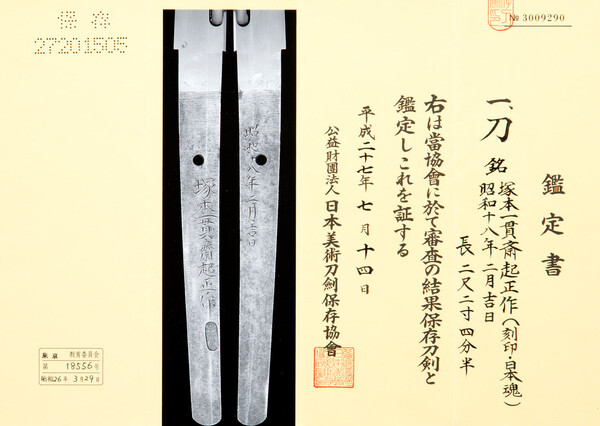 № 3009290
鑑定書
一、刀 銘 塚本一貫斎起正作(刻印・日本魂)
昭和十八年二月吉日
長 二尺二寸四分半
右は當協會に於て審査の結果保存刀剣と
鑑定しこれを証する
平成二十七年 七月 十四日
公益財團法人 日本美術刀劍保存協會
昭和十八年二月吉日
塚本一貫斎起正作
保存
27201505
東京 教育委員会
第 18556号
昭和26年 3月29日